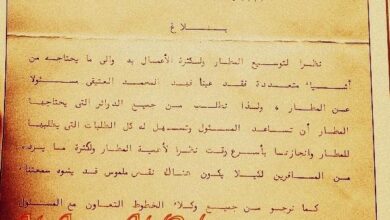 بـــلاغ
نظرا لتوسيع المطار ولكثرة الأعمال به والى ما يحتاجه من
أشياء متعددة فقد عينا فهد المحمد العتيقي مسئولا
عن المطار ، ولهذا نطلب من جميع الدوائر التى يحتاجها
المطار أن تساعد المسئول وتسهل له كل الطلبات التى يطلبها
للمطار وانجازها بأسرع وقت نظرا لأهمية المطار ولكثرة ما يرده
من المسافرين لكيلا يكون هناك نقص ملموس قد يشوه سمعتنا
كما نرجو من جميع وكلاء الخطوط التعاون مع المسئول